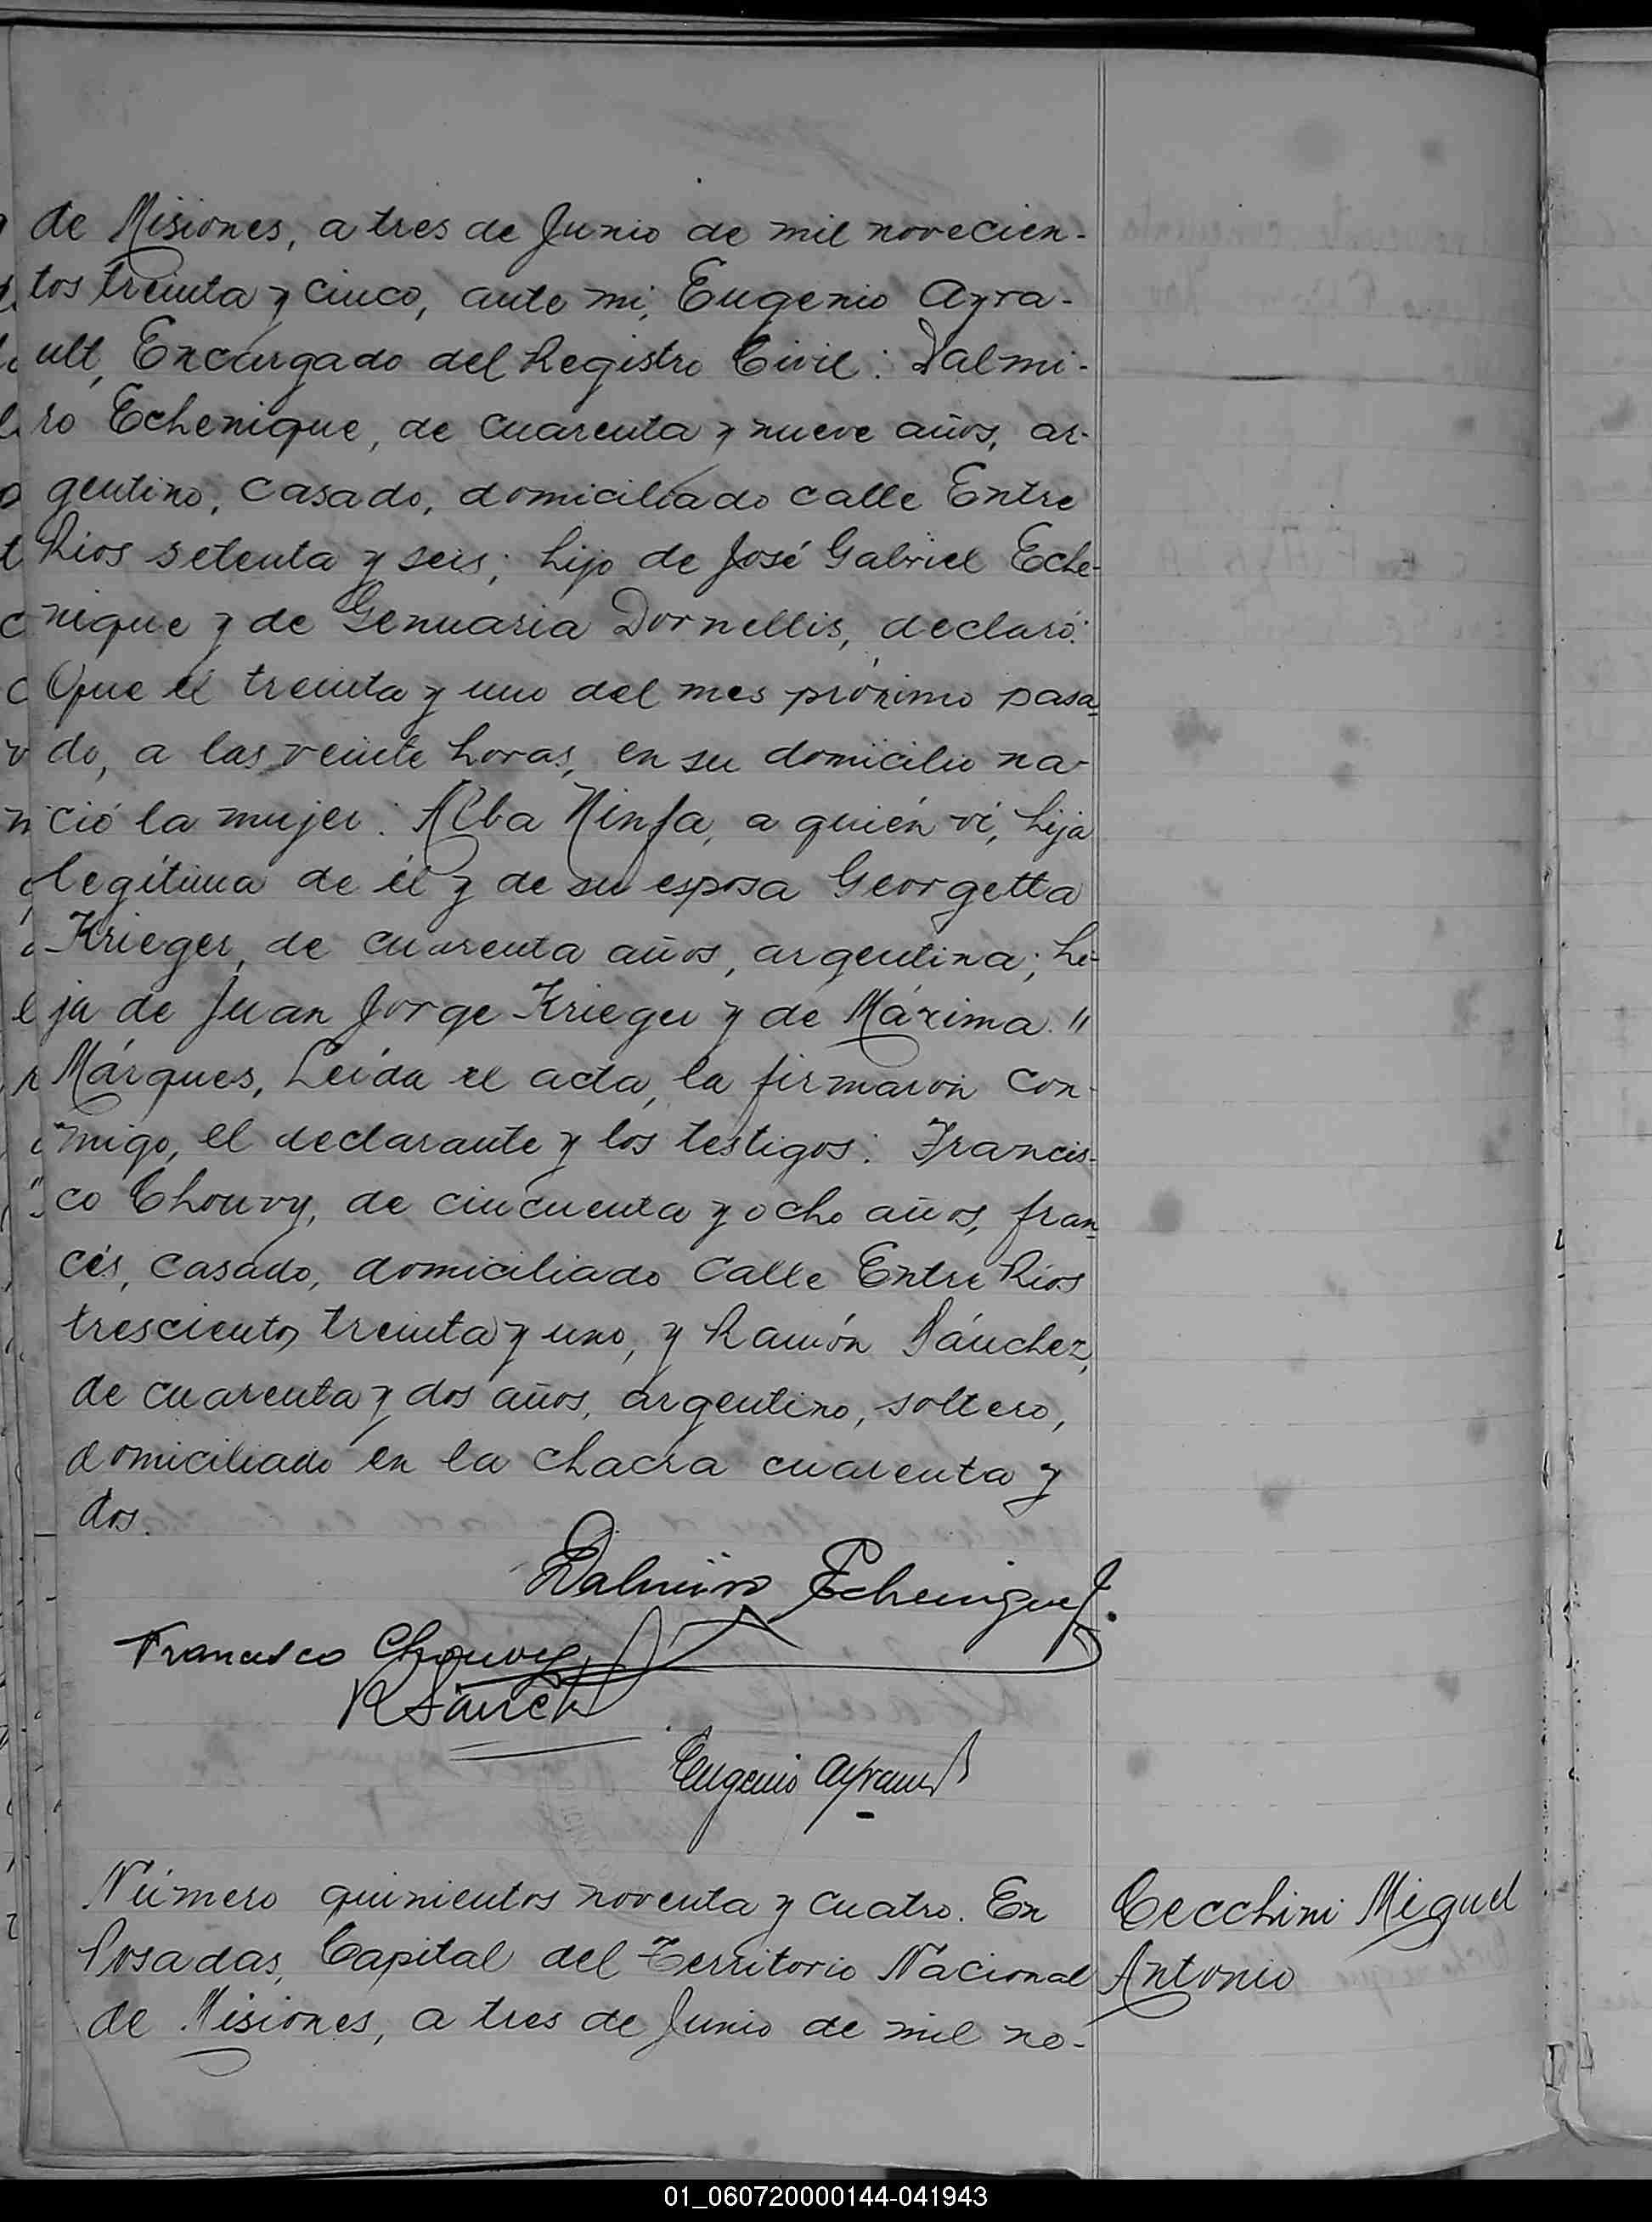 de Misiones, a tres de Junio de mil novecien-
tos treinta y cinco, ante mi, Eugenio Ayra-
ult, Encargado del Registro Civil: Dalmi-
ro Echenique, de cuarenta y nueve años, ar-
gentino, casado, domiciliado calle Entre
Rios setenta y seis; hijo de José Gabriel Eche-
nique y de Genuaria Dornellis, declaró:
Que el treinta y uno del mes próximo pasa
do, a las veinte horas, en su domicilio na-
ció la mujer: Alba Ninfa, a quién ví, hija
legítima de él y de su esposa Georgetta
Krieger, de cuarenta años, argentina; hi-
ja de Juan Jorge Krieger y de Máxima "
Márques, Leída el acta, la firmaron con-
migo, el declarante y los testigos: Francis-
co Chouvy, de cincuenta y ocho años, fran
cés, casado, domiciliado calle Entre Rios
trescientos treinta y uno, y Ramón Sánchez,
de cuarenta y dos años, argentino, soltero,
domiciliado en la chacra cuarenta y
dos.
Dalmiro Echenique
Francisco Chouvy
R Sánch
Eugenio Ayrault
Número quinientos noventa y cuatro. En
Posadas, Capital del Territorio Nacional
de Misiones, a tres de Junio de mil no-
Cecchini Miguel
Antonio
01_060720000144-041943